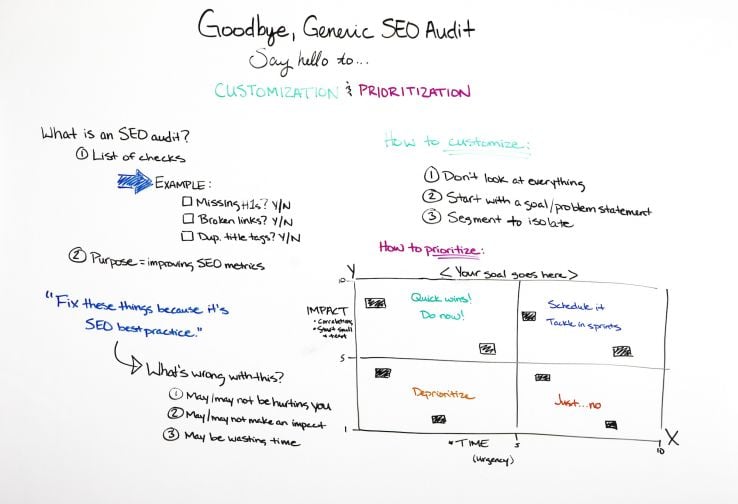 Goodbye, Generic SEO Audit
Say hello to...
CUSTOMIZATION & PRIORITIZATION
What is an SEO audit?
① List of checks
EXAMPLE:
Missing H1s? Y/N
Broken links? Y/N
Dup. title tags? Y/N
② Purpose = improving SEO metrics
"Fix these things because it's
SEO best practice."
What's wrong with this?
① May/may not be hurting you
② May/may not make an impact
③ May be wasting time
How to customize:
① Don't look at everything
② Start with a goal/problem statement
③ Segment to isolate
How to prioritize:
Y
<Your goal goes here>
10
IMPACT
• Correlations
• Start small
+ test
Quick wins!
Do now!
Schedule it
Tackle in sprints
5
Deprioritize
Just...no
1
• TIME
(Urgency)
5
10
X